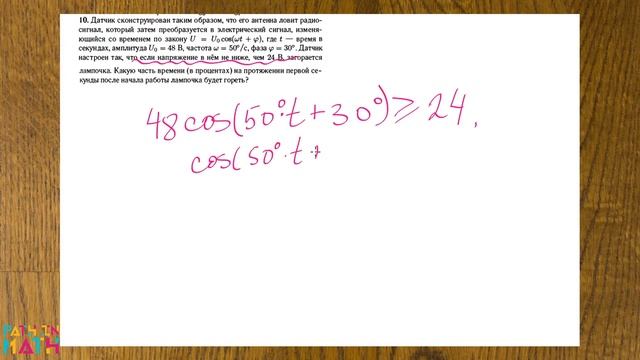 10. Датчик сконструирован таким образом, что его антенна ловит радио-
сигнал, который затем преобразуется в электрический сигнал, изменя-
ющийся со временем по закону U = U₀ cos(ωt + φ), где t — время в
секундах, амплитуда U₀ = 48 В, частота ω = 50°/с, фаза φ = 30°. Датчик
настроен так, что если напряжение в нём не ниже, чем 24 В, загорается
лампочка. Какую часть времени (в процентах) на протяжении первой се-
кунды после начала работы лампочка будет гореть?
48cos(50°·t+30°)⩾24,
cos(50°·t+
PATH IN
MATH